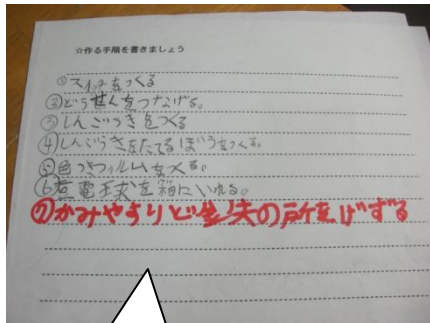 ☆作る手順を書きましょう
①スイッチをつくる
②どうせんをつなげる。
③しんごうきをつくる
④しんごうきをたてるぼうをつくる。
⑤色つきフィルムをつくる。
⑥豆電球を箱にいれる。
⑦かみやすりど鉄の所をけずる